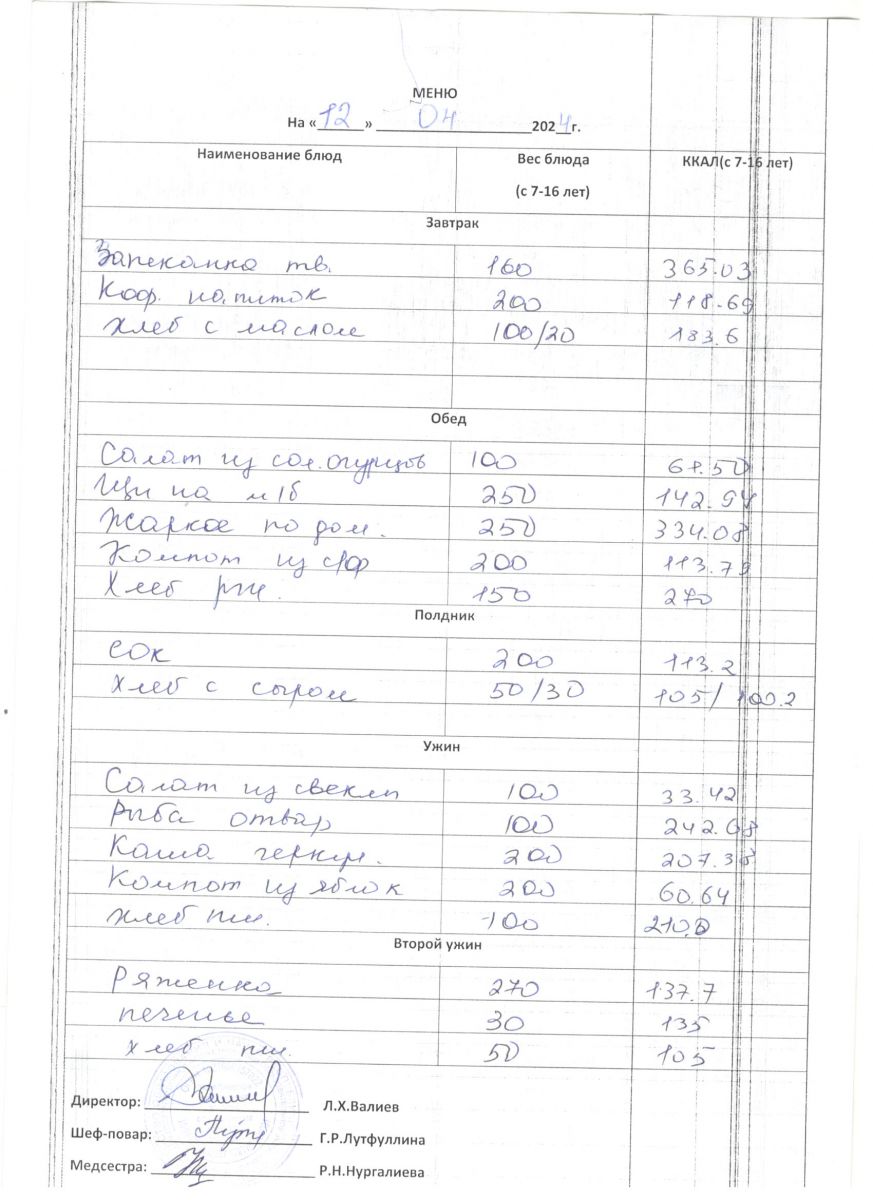 МЕНЮ
На «12» 04 2024 г.
Наименование блюд Вес блюда (с 7-16 лет) ККАЛ(с 7-16 лет)
Завтрак
Запеканка тв. 160 365.03
Коф. напиток 200 118.69
Хлеб с маслом 100/20 183.6
Обед
Салат из сол. огурцов 100 68.50
Щи на м/б 250 142.94
Жаркое по дом. 250 334.08
Компот из с/ф 200 113.79
Хлеб рж. 150 270
Полдник
Сок 200 113.2
Хлеб с сыром 50/30 105/100.2
Ужин
Салат из свеклы 100 33.42
Рыба отвар 100 242.08
Каша гречн. 200 207.38
Компот из яблок 200 60.64
Хлеб пш. 100 210,0
Второй ужин
Ряженка 270 137.7
печенье 30 135
хлеб пш. 50 105
Директор: Л.Х.Валиев
Шеф-повар: Г.Р.Лутфуллина
Медсестра: Р.Н.Нургалиева